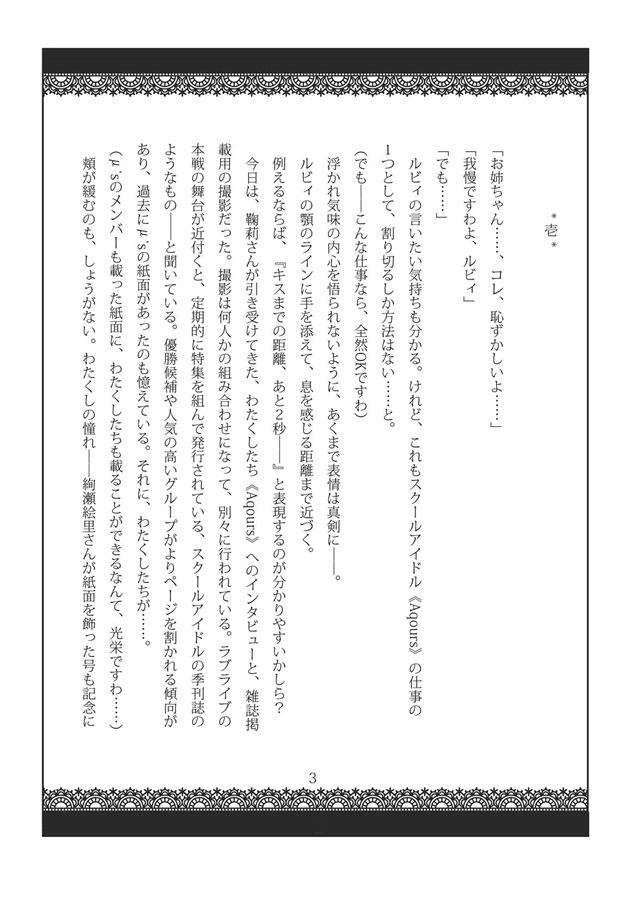 ＊壱＊
「お姉ちゃん……、コレ、恥ずかしいよ……」
「我慢ですわよ、ルビィ」
「でも……」
ルビィの言いたい気持ちも分かる。けれど、これもスクールアイドル《Aqours》の仕事の
１つとして、割り切るしか方法はない……と。
（でも――こんな仕事なら、全然OKですわ）
浮かれ気味の内心を悟られないように、あくまで表情は真剣に――。
ルビィの顎のラインに手を添えて、息を感じる距離まで近づく。
例えるならば、『キスまでの距離、あと２秒――』と表現するのが分かりやすいかしら？
今日は、鞠莉さんが引き受けてきた、わたくしたち《Aqours》へのインタビューと、雑誌掲
載用の撮影だった。撮影は何人かの組み合わせになって、別々に行われている。ラブライブの
本戦の舞台が近付くと、定期的に特集を組んで発行されている、スクールアイドルの季刊誌の
ようなもの――と聞いている。優勝候補や人気の高いグループがよりページを割かれる傾向が
あり、過去にμ'sの紙面があったのも憶えている。それに、わたくしたちが……。
（μ'sのメンバーも載った紙面に、わたくしたちも載ることができるなんて、光栄ですわ……）
頬が緩むのも、しょうがない。わたくしの憧れ――絢瀬絵里さんが紙面を飾った号も記念に
3